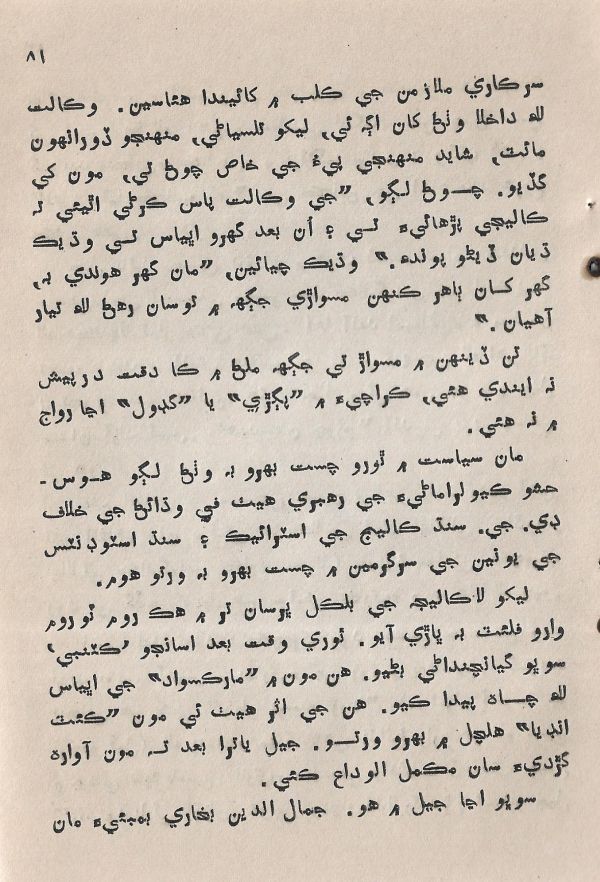 ٨١
سرڪاري ملازمن جي ڪلب ۾ کائيندا هئاسين. وڪالت
لاءِ داخلا وٺڻ کان اڳ ئي، ليکو تلسياڻي، منهنجو ڏورانهون
مائٽ، شايد منهنجي پيءُ جي خاص چوڻ تي، مون کي
گڏيو. چوڻ لڳو، ”جي وڪالت پاس ڪرڻي اٿيئي ته
ڪاليجي پڙهائيءَ تي ۽ اُن بعد گهرو اڀياس تي وڌيڪ
ڌيان ڏيڻو پوندءِ.“ وڌيڪ چيائين، ”مان گهر هوندي به،
گهر کان ٻاهر ڪنهن مسواڙي جڳهه ۾ توسان رهڻ لاءِ تيار
آهيان.“
تن ڏينهن ۾ مسواڙ تي جڳهه ملڻ ۾ ڪا دقت درپيش
نه ايندي هئي، ڪراچيءَ ۾ ”پڳڙي“ يا ”گڊول“ اڃا رواج
۾ نه هئي.
مان سياست ۾ ٿورو چست بهرو به وٺڻ لڳو هوس-
حشو ڪيولراماڻيءَ جي رهبري هيٺ في وڌائڻ جي خلاف
ڊي. جي. سنڌ ڪاليج جي اسٽرائيڪ ۽ سنڌ اسٽوڊنٽس
جي يونين جي سرگرمين ۾ چست بهرو به ورتو هوم.
ليکو لا ڪاليجه جي بلڪل ڀرسان ئي ۾ هڪ روم ٽو روم
وارو فلئٽ به ڀاڙي آيو. ٿوري وقت بعد اسانجو ’ڪٽنبي‘
سوڀو گيانچنداڻي بڻيو. هن مون ۾ ”مارڪسواد“ جي اڀياس
لاءِ چاهه پيدا ڪيو. هن جي اثر هيٺ ئي مون ”ڪئٽ
انڊيا“ هلچل ۾ بهرو ورتو. جيل ياترا بعد ته مون آواره
گرديءَ سان مڪمل الوداع ڪئي.
سوڀو اڃا جيل ۾ هو. جمال الدين بخاري بمبئيءَ مان